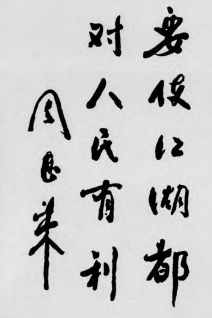 要使江湖都
对人民有利
周恩来